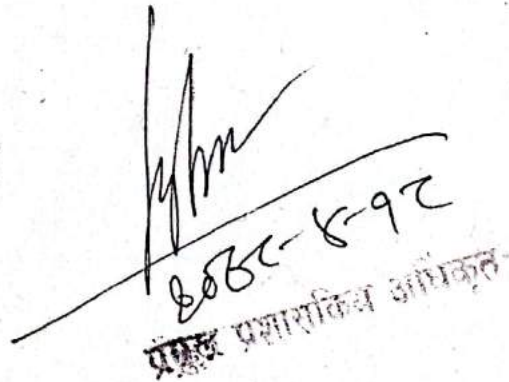 २०८२-४-१२
प्रमुख प्रशासकिय अधिकृत